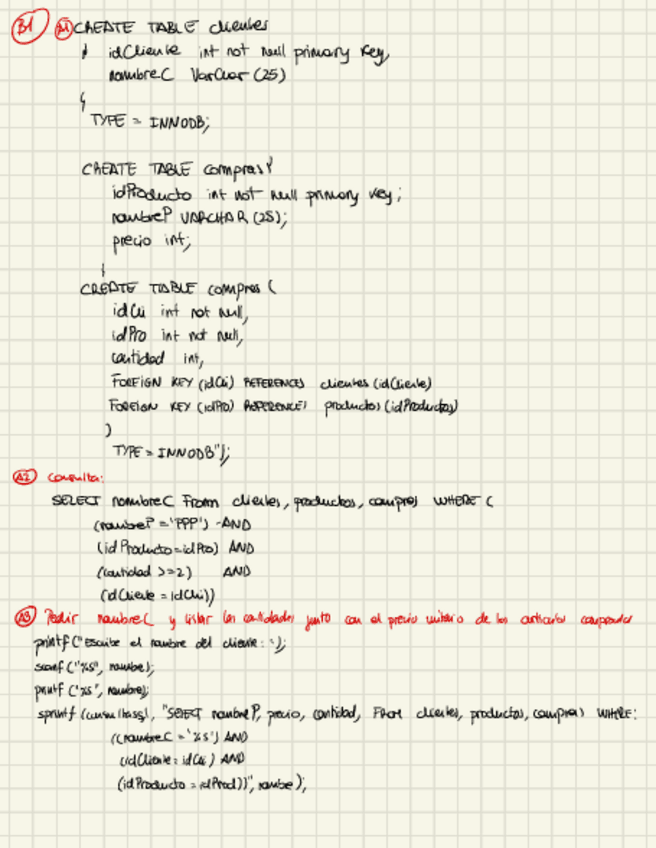 B1 A1 CREATE TABLE clientes
( idCliente int not null primary key,
nombreC VarChar (25)
)
TYPE = INNODB;
CREATE TABLE compras (
idProducto int not null primary key;
nombreP VARCHAR (25);
precio int;
)
CREATE TABLE compras (
idCli int not null,
idPro int not null,
cantidad int,
FOREIGN KEY (idCli) REFERENCES clientes (idCliente)
FOREIGN KEY (idPro) REFERENCES productos (idProductos)
)
TYPE = INNODB");
A2 consulta:
SELECT nombreC From clientes, productos, compras WHERE (
(nombreP = 'PPP') AND
(idProducto = idPro) AND
(cantidad >= 2) AND
(idCliente = idCli))
A3 Pedir nombreC y listar las cantidades junto con el precio unitario de los articulos comprados
printf ("Escribe el nombre del cliente: ");
scanf ("%s", nombre);
printf ("%s", nombre);
sprintf (consultasql, "SELECT nombreP, precio, cantidad, FROM clientes, productos, compras WHERE:
((nombreC = '%s') AND
(idCliente = idCli) AND
(idProducto = idProd))", nombre);